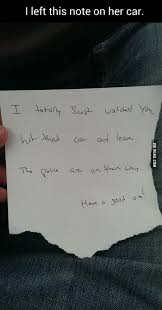 I left this note on her car.
I totally just watched you
hit that car and leave
The police are on their way.
Have a good one!
VIA 9GAG.COM